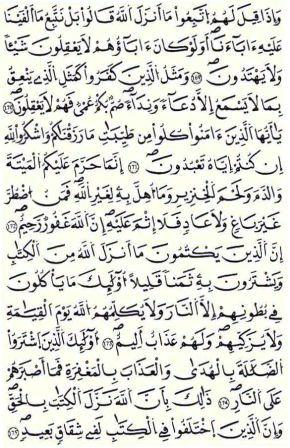 وَإِذَا قِيلَ لَهُمُ اتَّبِعُوا مَا أَنزَلَ اللَّهُ قَالُوا بَلْ نَتَّبِعُ مَا أَلْفَيْنَا
عَلَيْهِ ءَابَاءَنَا أَوَلَوْ كَانَ ءَابَاؤُهُمْ لَا يَعْقِلُونَ شَيْئًا
وَلَا يَهْتَدُونَ ١٦٩ وَمَثَلُ الَّذِينَ كَفَرُوا كَمَثَلِ الَّذِي يَنْعِقُ
بِمَا لَا يَسْمَعُ إِلَّا دُعَاءً وَنِدَاءً صُمٌّ بُكْمٌ عُمْيٌ فَهُمْ لَا يَعْقِلُونَ ١٧٠
يَٰأَيُّهَا الَّذِينَ ءَامَنُوا كُلُوا مِن طَيِّبَٰتِ مَا رَزَقْنَٰكُمْ وَاشْكُرُوا لِلَّهِ
إِن كُنتُمْ إِيَّاهُ تَعْبُدُونَ ١٧١ إِنَّمَا حَرَّمَ عَلَيْكُمُ الْمَيْتَةَ
وَالدَّمَ وَلَحْمَ الْخِنزِيرِ وَمَا أُهِلَّ بِهِ لِغَيْرِ اللَّهِ فَمَنُ اضْطُرَّ
غَيْرَ بَاغٍ وَلَا عَادٍ فَلَا إِثْمَ عَلَيْهِ إِنَّ اللَّهَ غَفُورٌ رَّحِيمٌ ١٧٢
إِنَّ الَّذِينَ يَكْتُمُونَ مَا أَنزَلَ اللَّهُ مِنَ الْكِتَٰبِ
وَيَشْتَرُونَ بِهِ ثَمَنًا قَلِيلًا أُوْلَٰئِكَ مَا يَأْكُلُونَ
فِي بُطُونِهِمْ إِلَّا النَّارَ وَلَا يُكَلِّمُهُمُ اللَّهُ يَوْمَ الْقِيَٰمَةِ
وَلَا يُزَكِّيهِمْ وَلَهُمْ عَذَابٌ أَلِيمٌ ١٧٣ أُوْلَٰئِكَ الَّذِينَ اشْتَرَوُا
الضَّلَٰلَةَ بِالْهُدَىٰ وَالْعَذَابَ بِالْمَغْفِرَةِ فَمَا أَصْبَرَهُمْ
عَلَى النَّارِ ١٧٤ ذَٰلِكَ بِأَنَّ اللَّهَ نَزَّلَ الْكِتَٰبَ بِالْحَقِّ
وَإِنَّ الَّذِينَ اخْتَلَفُوا فِي الْكِتَٰبِ لَفِي شِقَاقٍ بَعِيدٍ ١٧٥